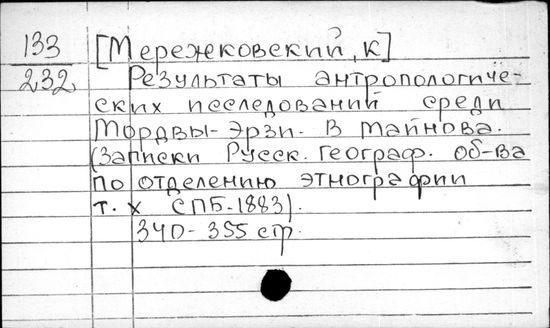 133
232
[Мережковский, К]
Результаты антропологиче-
ских исследований среди
Мордвы-Эрзи. В Майнова.
(Записки Русск. Географ. об-ва
по отделению этнографии
т. X СПБ-1883).
340-355 стр.